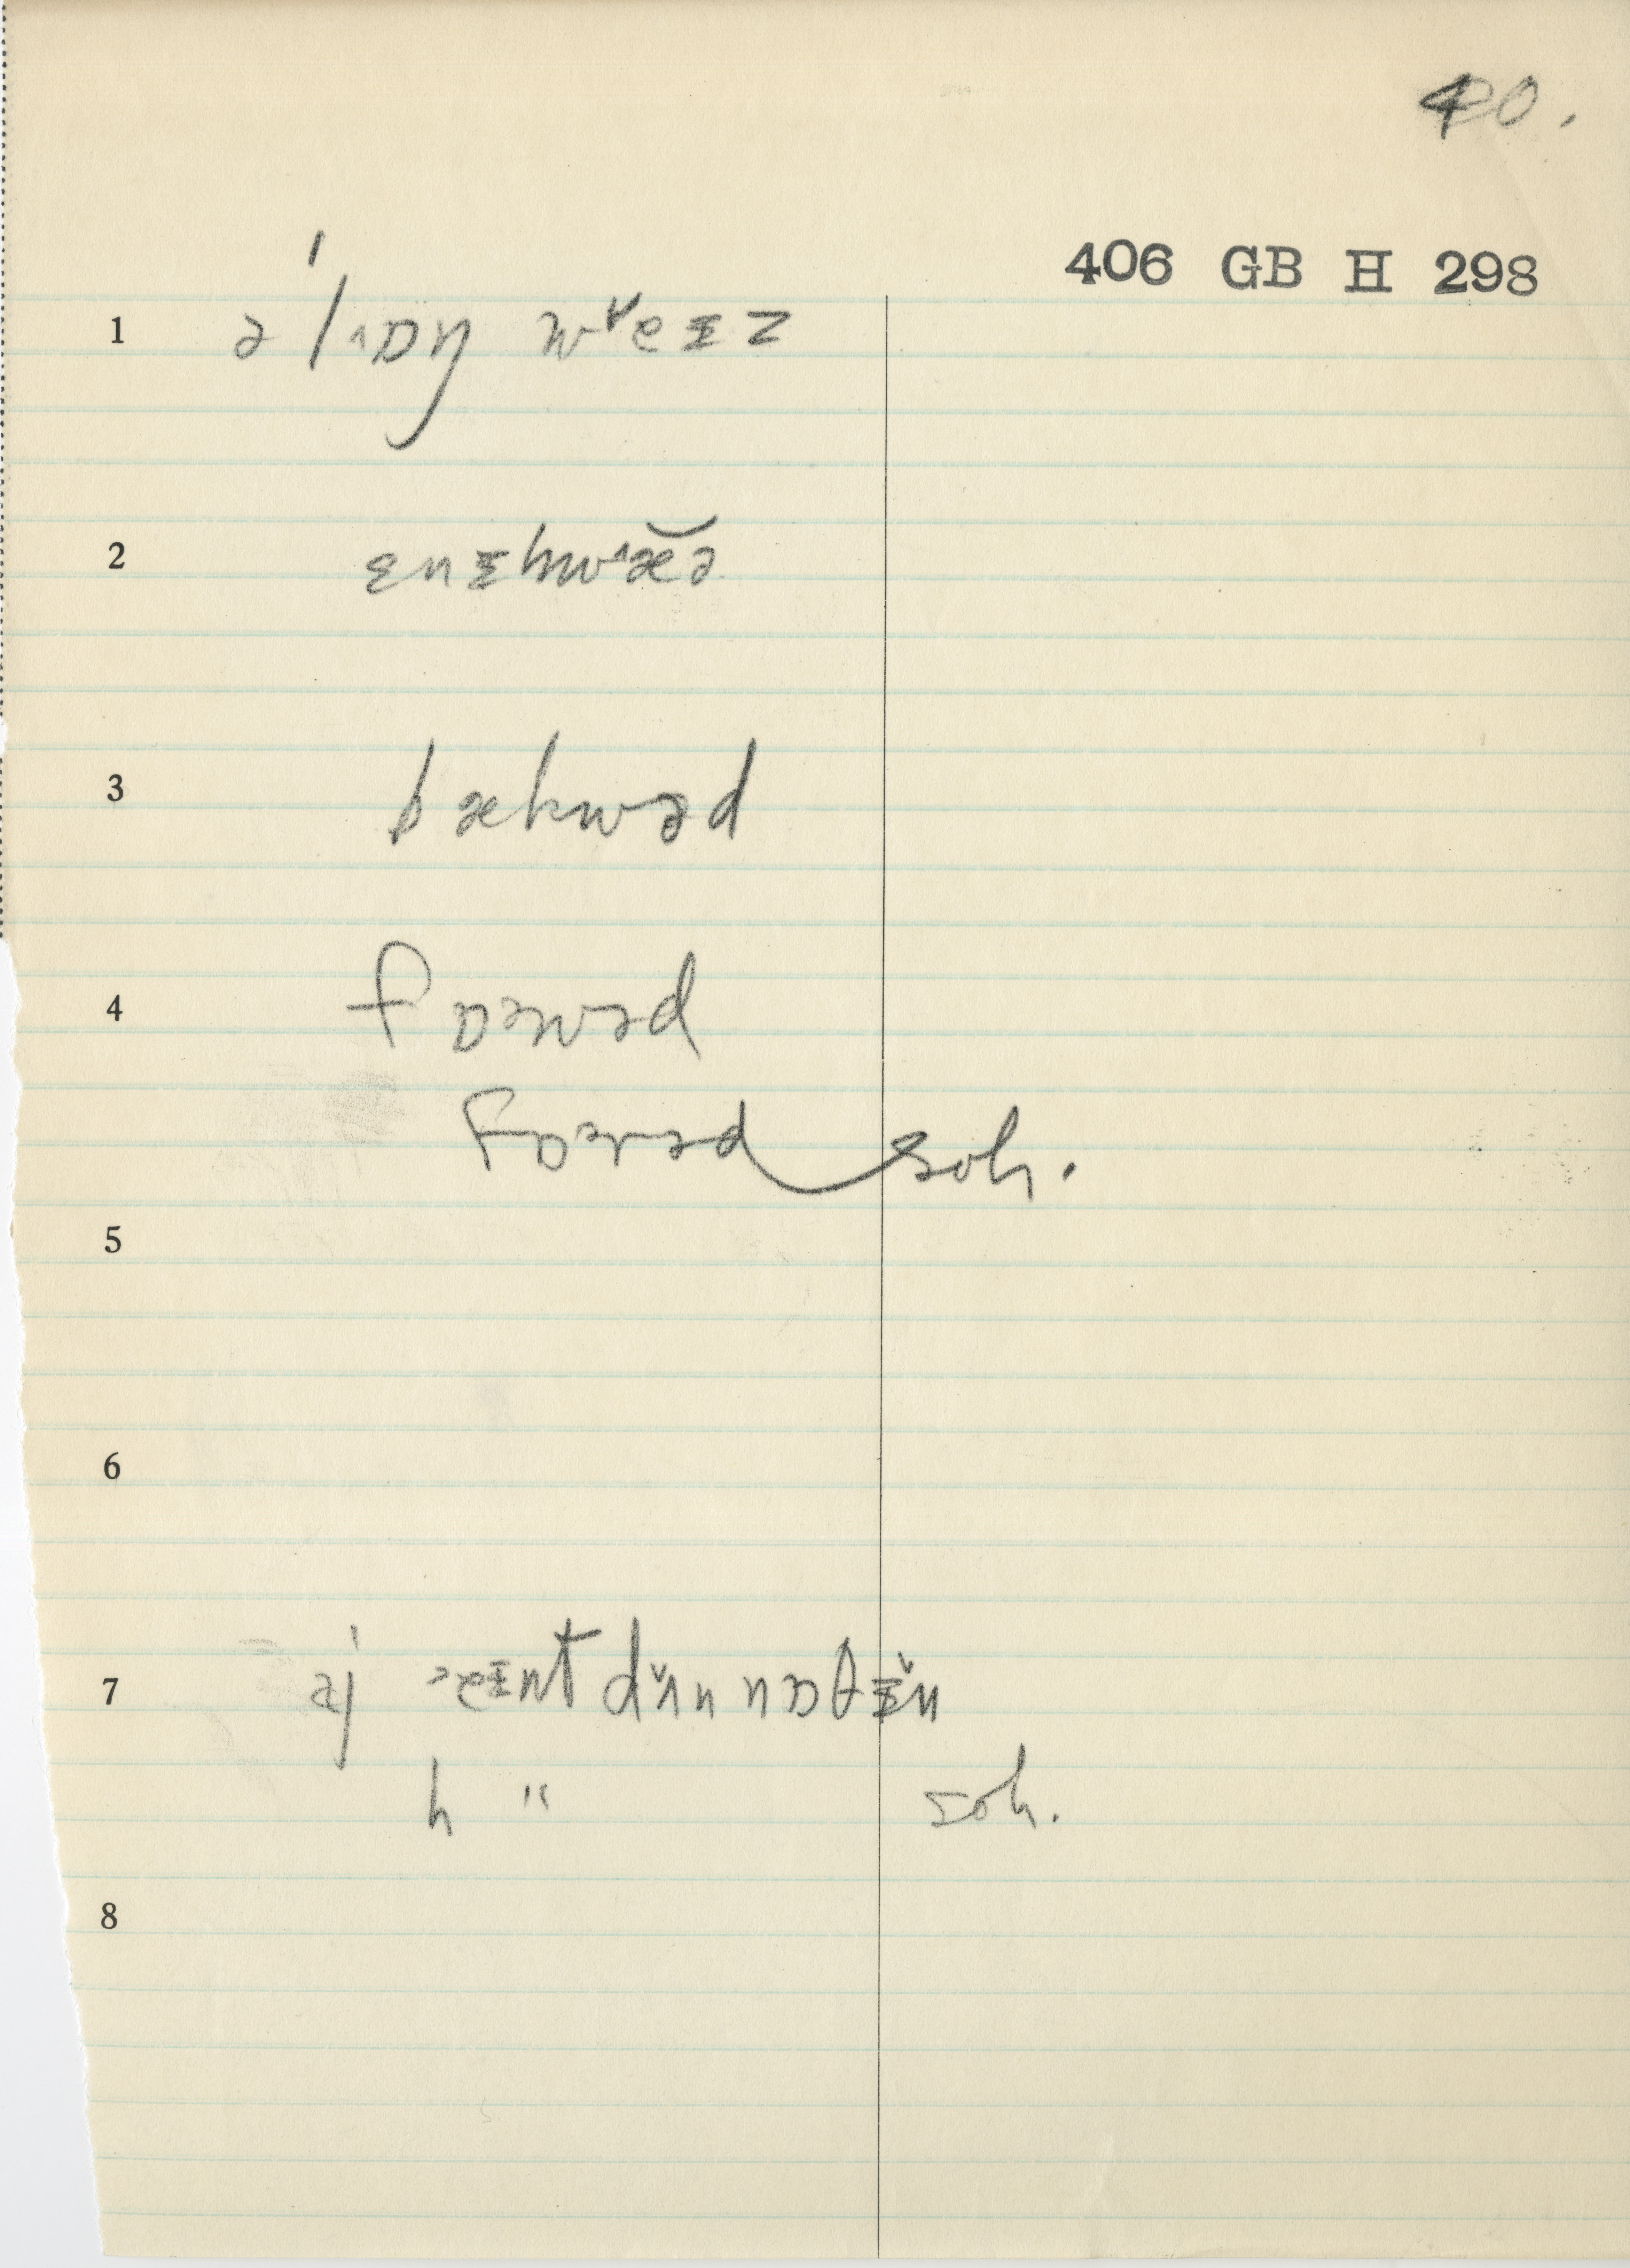 40.
406 GB H 298
1 ə l˄ɒŋ w˅eɪz
2 ɛnɪhw˄æ̆ə
3 bækwəd
4 fɒəwəd
fɒərəd soh.
5
6
7 aj ɛɪnt dʌ̌n nɒθɪ̌n
h " soh.
8